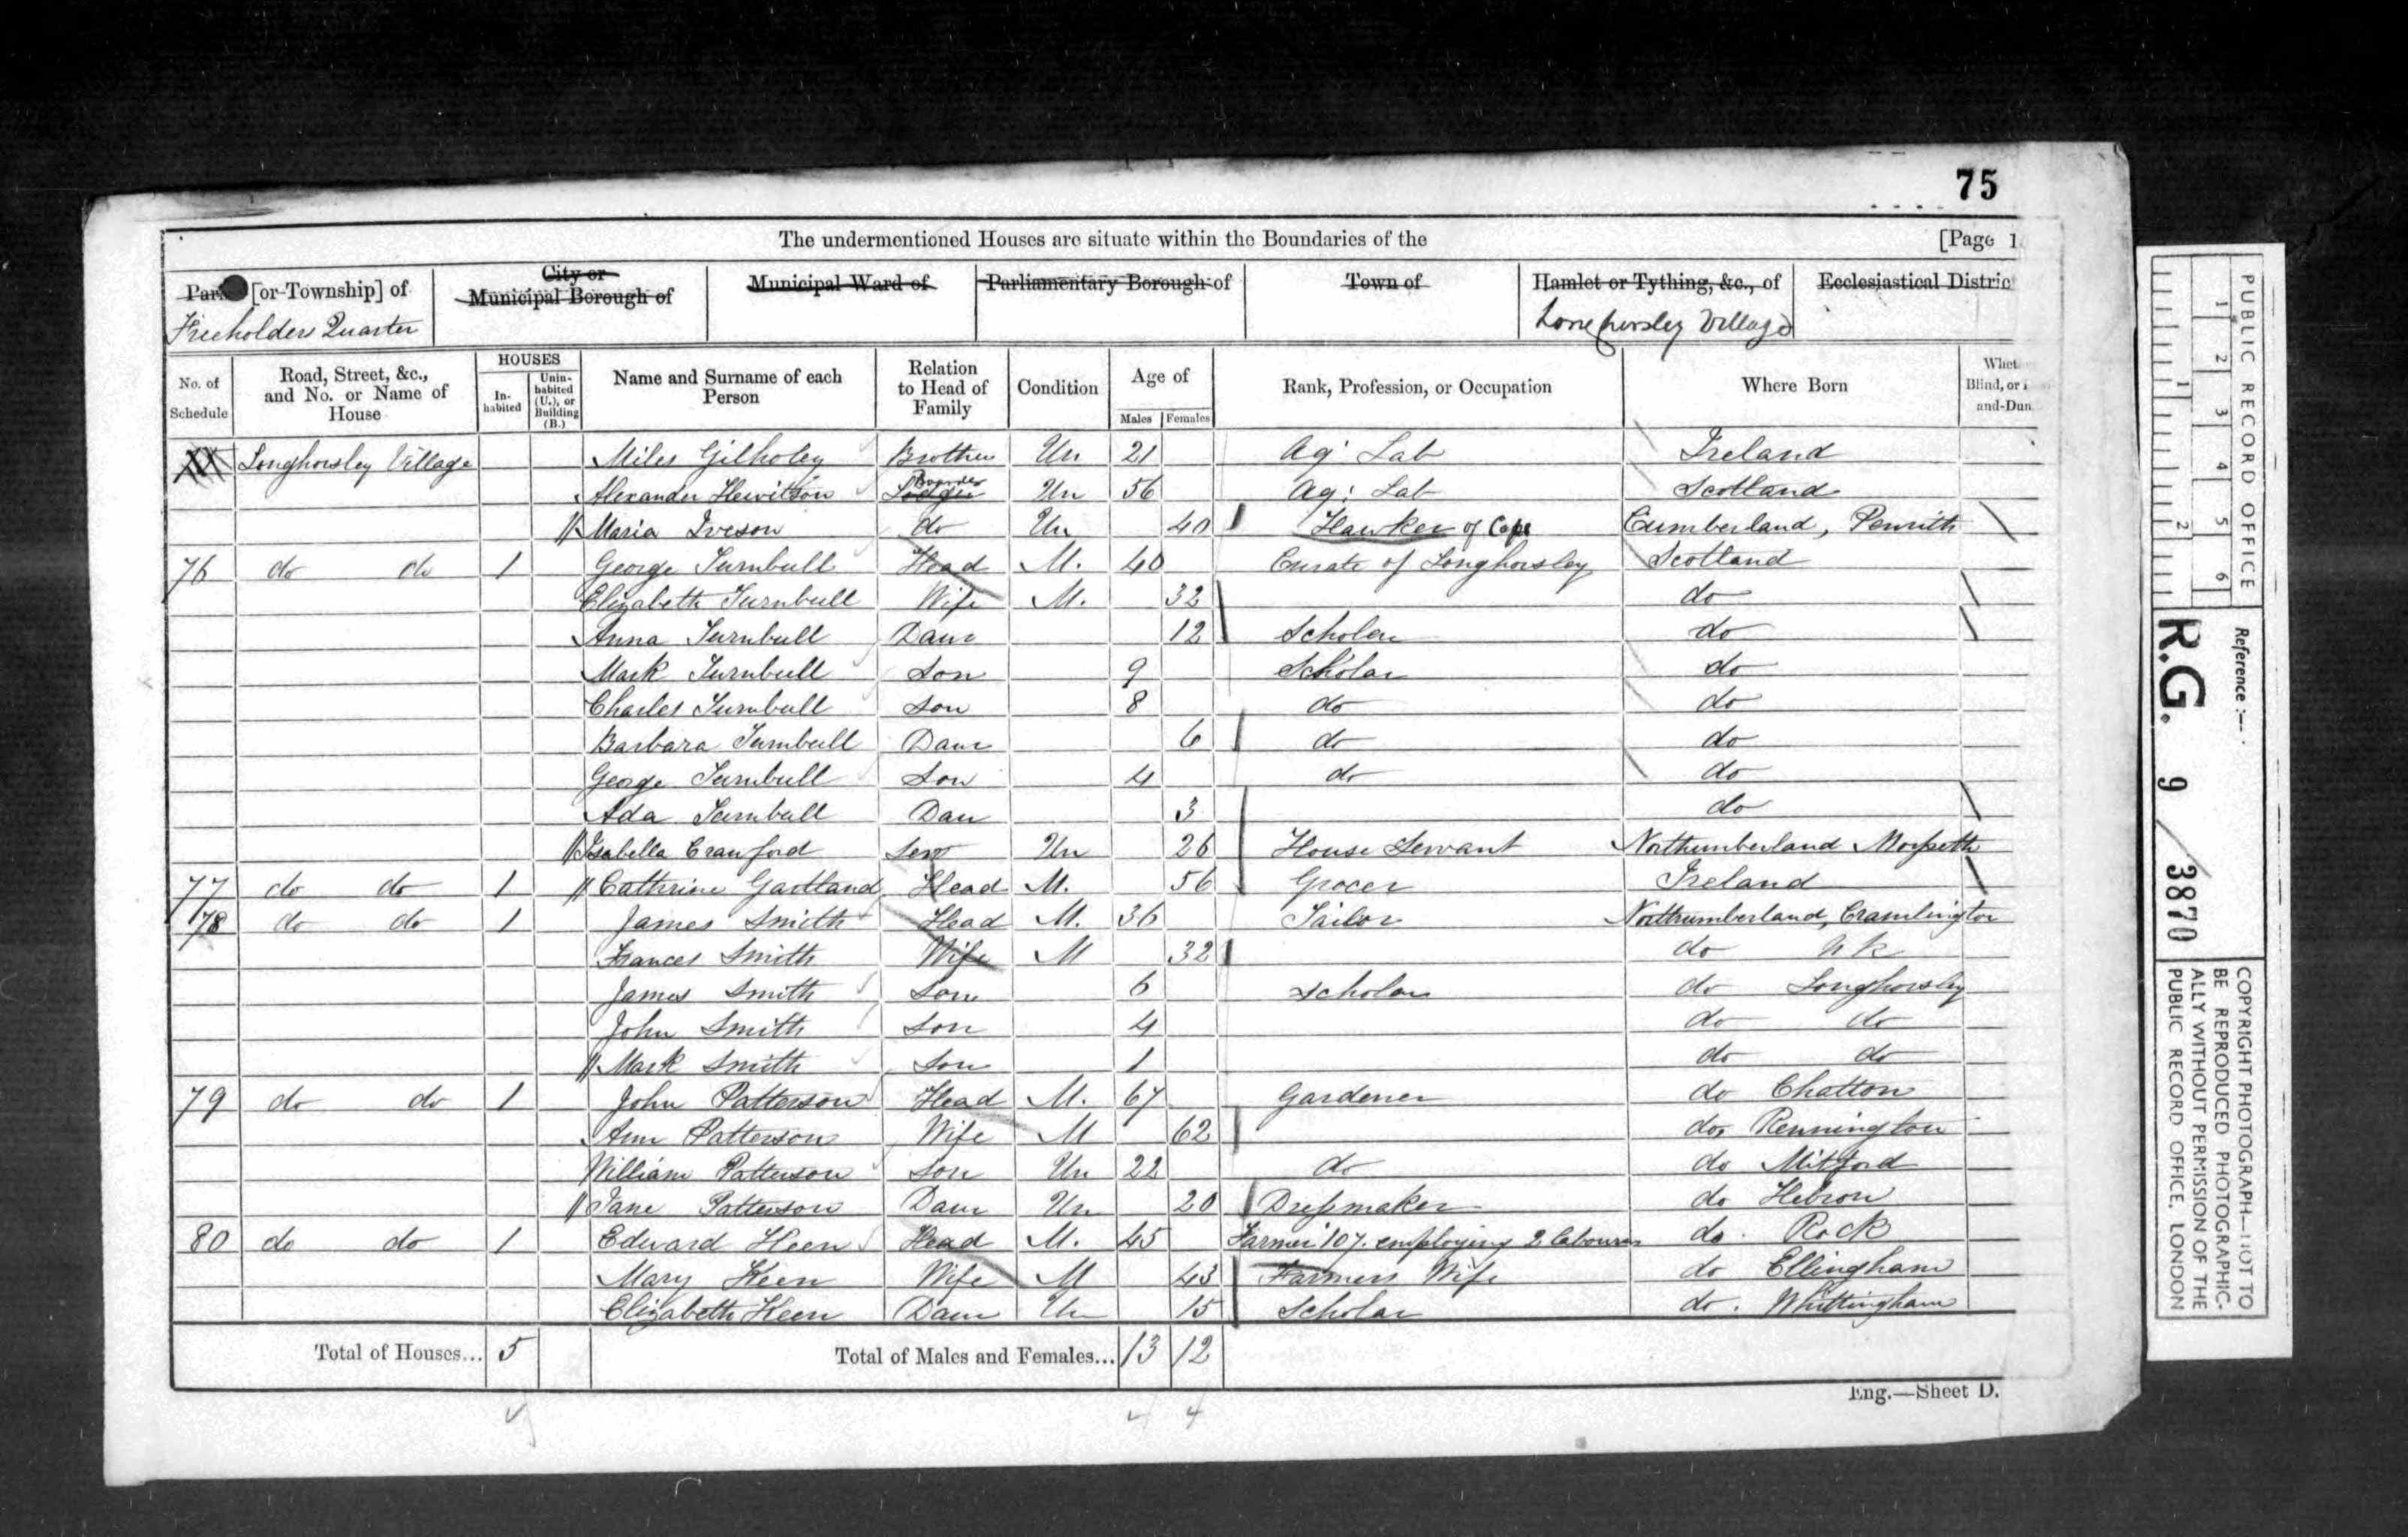 75
The undermentioned Houses are situate within the Boundaries of the [Page 1
Parish [or Township] of City or Municipal Borough of Municipal Ward of Parliamentary Borough of Town of Hamlet or Tything, &c., of Ecclesiastical Distric
Freeholders Quarter Longhorsley Village
No. of Schedule Road, Street, &c., and No. or Name of House HOUSES Inhabited Uninhabited (U.), or Building (B.) Name and Surname of each Person Relation to Head of Family Condition Age of Males Females Rank, Profession, or Occupation Where Born Whet Blind, or and-Dum
Longhorsley Village Miles Gilholey Brother Un 21 Ag: Lab Ireland
Alexander Hewitson Lodger Boarder Un 56 Ag: Lab Scotland
Maria Iveson do Un 40 Hawker of Cumberland, Penrith
76 do do 1 George Turnbull Head M. 40 Curate of Longhorsley Scotland
Elizabeth Turnbull Wife M. 32 do
Anna Turnbull Daur 12 Scholar do
Mark Turnbull Son 9 Scholar do
Charles Turnbull Son 8 do do
Barbara Turnbull Daur 6 do do
George Turnbull Son 4 do do
Ada Turnbull Dau 3 do
Isabella Crawford Serv Un 26 House Servant Northumberland Morpeth
77 do do 1 Cathrine Gartland Head M. 56 Grocer Ireland
78 do do 1 James Smith Head M. 36 Tailor Northumberland, Cramlington
Frances Smith Wife M 32 do N K
James Smith Son 6 Scholar do Longhorsley
John Smith Son 4 do do
Mark Smith Son 1 do do
79 do do 1 John Patterson Head M. 67 Gardener do Chatton
Ann Patterson Wife M 62 do Rennington
William Patterson Son Un 22 do do Mitford
Jane Patterson Daur Un 20 Dressmaker do Hebron
80 do do 1 Edward Keen Head M. 45 Farmer 107. employing 2 labourers do. Rock
Mary Keen Wife M 43 Farmers Wife do Ellingham
Elizabeth Keen Daur Un 15 Scholar do. Whittingham
Total of Houses... 5 Total of Males and Females... 13 12
Eng.—Sheet D.
PUBLIC RECORD OFFICE
1 2 3 4 5 6
1 2
Reference :—
R.G. 9 / 3870
COPYRIGHT PHOTOGRAPH—NOT TO
BE REPRODUCED PHOTOGRAPHIC-
ALLY WITHOUT PERMISSION OF THE
PUBLIC RECORD OFFICE, LONDON